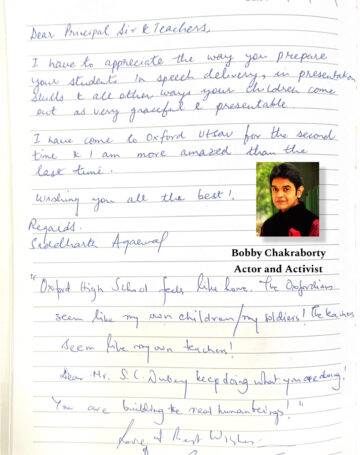 Dear Principal Sir & Teachers,
I have to appreciate the way you prepare
your students in speech delivery, in presentation
skills & all other ways your children come
out as very graceful & presentable.
I have come to Oxford Utsav for the second
time & I am more amazed than the
last time.
Wishing you all the best!
Regards.
Siddharth Agarwal
Bobby Chakraborty
Actor and Activist
"Oxford High School feels like home. The Oxfordians
seem like my own children/my soldiers! The teachers
seem like my own teachers!
Dear Mr. S.C. Dubey keep doing what you are doing!
You are building the real human beings!"
Love & Best Wishes